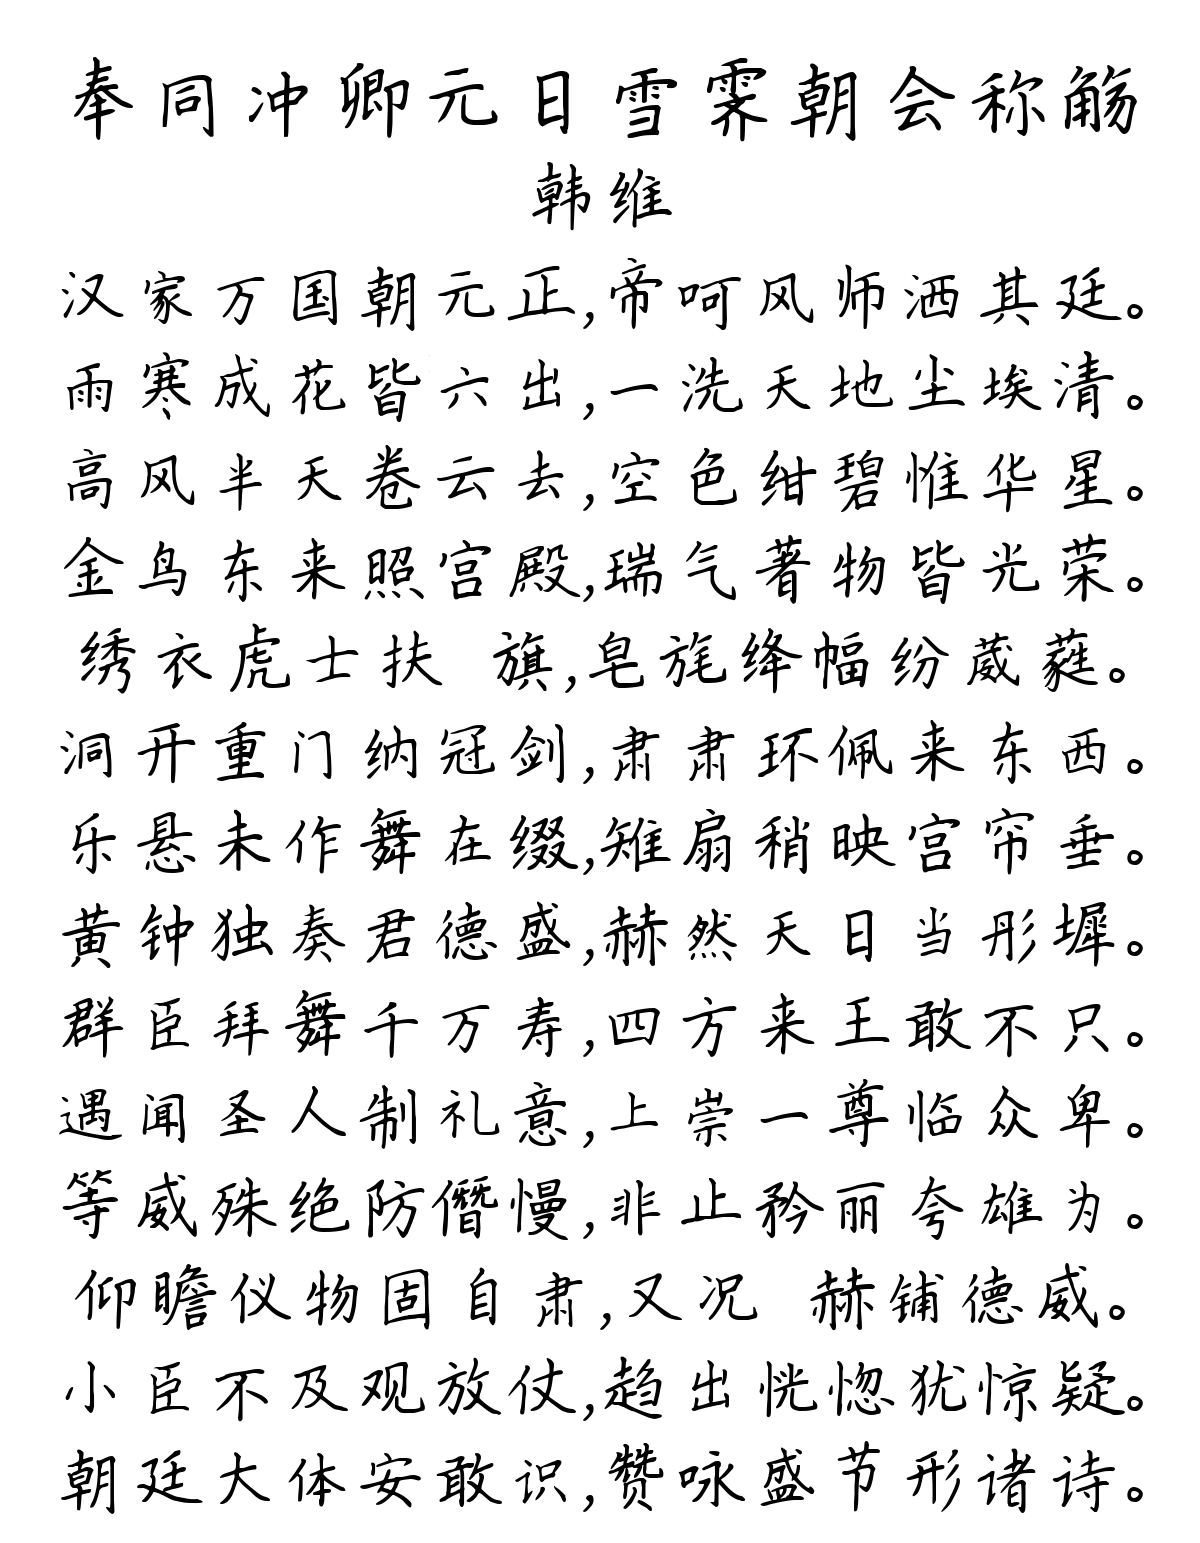 奉同冲卿元日雪霁朝会称觞
韩维
汉家万国朝元正,帝呵风师洒其廷。
雨寒成花皆六出,一洗天地尘埃清。
高风半天卷云去,空色绀碧惟华星。
金鸟东来照宫殿,瑞气著物皆光荣。
绣衣虎士扶 旗,皂旄绛幅纷葳蕤。
洞开重门纳冠剑,肃肃环佩来东西。
乐悬未作舞在缀,雉扇稍映宫帘垂。
黄钟独奏君德盛,赫然天日当彤墀。
群臣拜舞千万寿,四方来王敢不只。
遇闻圣人制礼意,上崇一尊临众卑。
等威殊绝防僭慢,非止矜丽夸雄为。
仰瞻仪物固自肃,又况 赫铺德威。
小臣不及观放仗,趋出恍惚犹惊疑。
朝廷大体安敢识,赞咏盛节形诸诗。